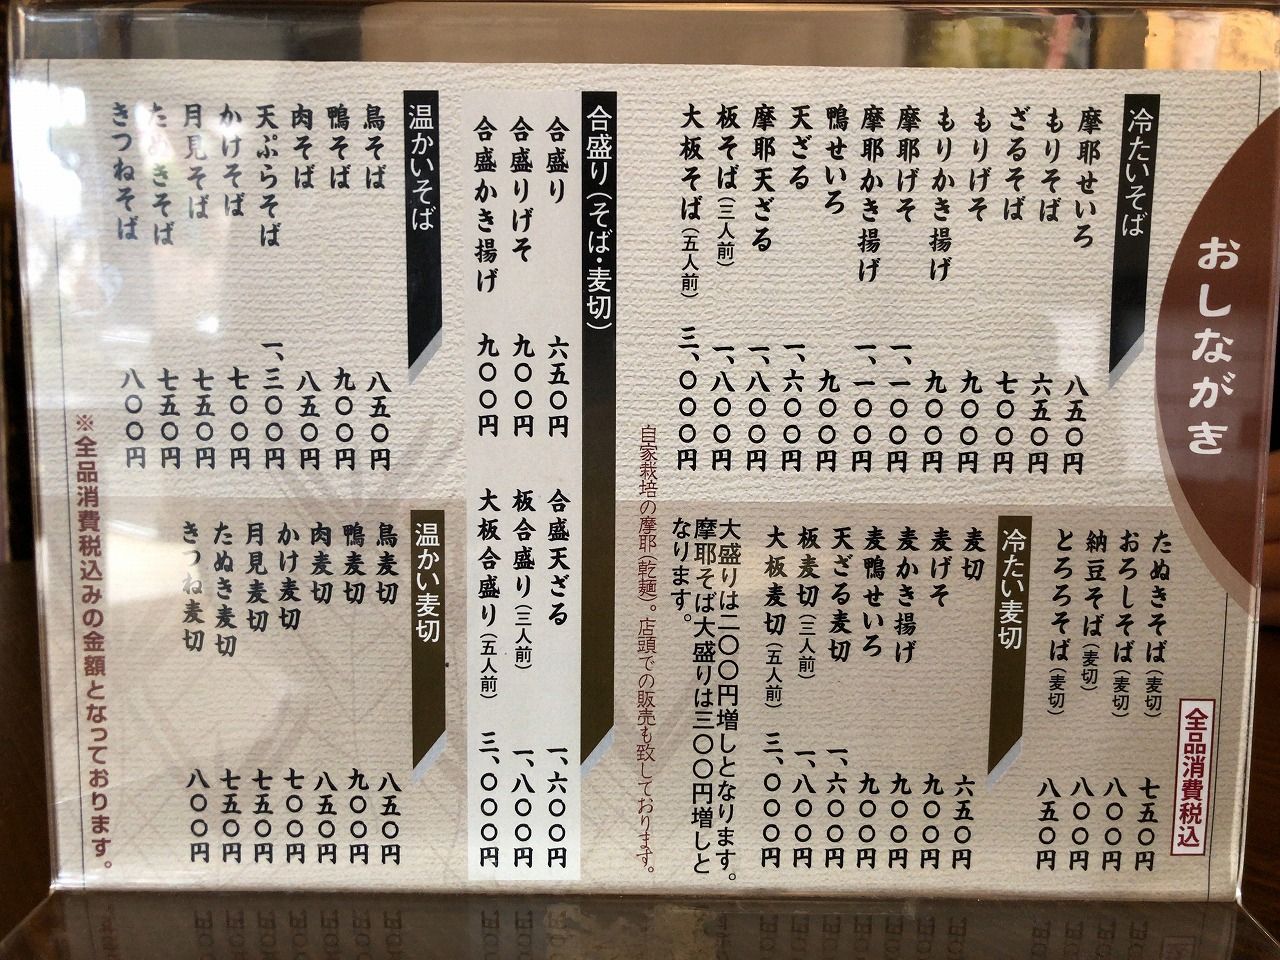 おしながき
全品消費税込
冷たいそば
摩耶せいろ 八五〇円
もりそば 六五〇円
ざるそば 七〇〇円
もりげそ 九〇〇円
もりかき揚げ 九〇〇円
摩耶げそ 一、一〇〇円
摩耶かき揚げ 一、一〇〇円
鴨せいろ 九〇〇円
天ざる 一、六〇〇円
摩耶天ざる 一、八〇〇円
板そば(三人前) 一、八〇〇円
大板そば(五人前) 三、〇〇〇円
たぬきそば(麦切) 七五〇円
おろしそば(麦切) 八〇〇円
納豆そば(麦切) 八〇〇円
とろろそば(麦切) 八五〇円
冷たい麦切
麦切 六五〇円
麦げそ 九〇〇円
麦かき揚げ 九〇〇円
麦鴨せいろ 九〇〇円
天ざる麦切 一、六〇〇円
板麦切(三人前) 一、八〇〇円
大板麦切(五人前) 三、〇〇〇円
大盛りは二〇〇円増しとなります。
摩耶そば大盛りは三〇〇円増しと
なります。
自家栽培の摩耶(乾麺)。店頭での販売も致しております。
合盛り(そば・麦切)
合盛り 六五〇円
合盛りげそ 九〇〇円
合盛かき揚げ 九〇〇円
合盛天ざる 一、六〇〇円
板合盛り(三人前) 一、八〇〇円
大板合盛り(五人前) 三、〇〇〇円
温かいそば
鳥そば 八五〇円
鴨そば 九〇〇円
肉そば 八五〇円
天ぷらそば 一、三〇〇円
かけそば 七〇〇円
月見そば 七五〇円
たぬきそば 七五〇円
きつねそば 八〇〇円
温かい麦切
鳥麦切 八五〇円
鴨麦切 九〇〇円
肉麦切 八五〇円
かけ麦切 七〇〇円
月見麦切 七五〇円
たぬき麦切 七五〇円
きつね麦切 八〇〇円
※全品消費税込みの金額となっております。